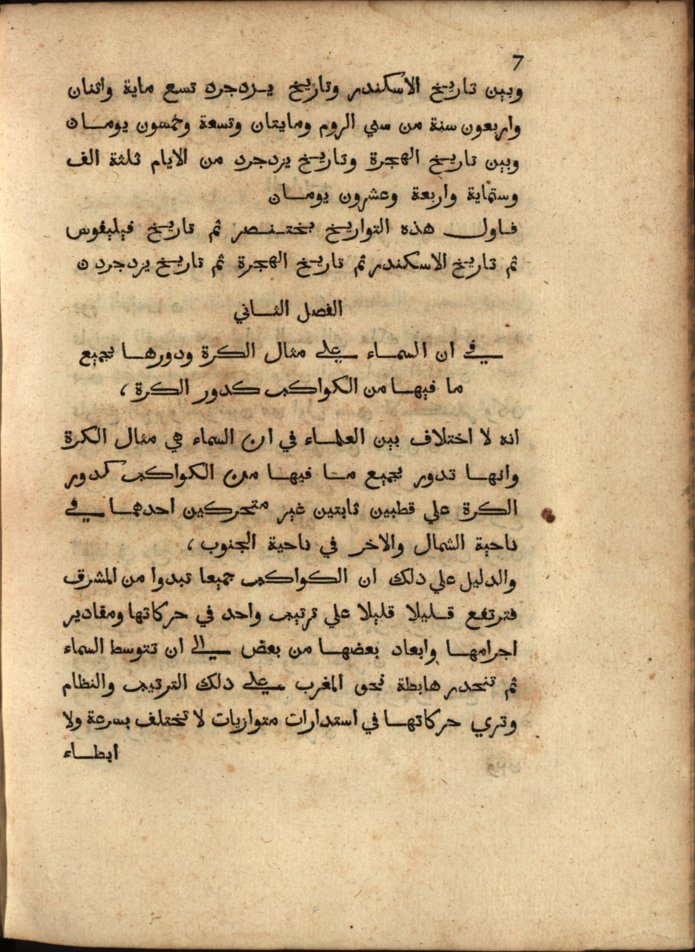 7
وبين تاريخ الاسكندر وتاريخ يـزدجرد تسع ماية واثنان
واربعون سنة من سني الروم ومايتان وتسعة وخمسون يومـا ن
وبين تاريخ الهجرة وتاريخ يزدجرد من الايام ثلثة الف
وستماية واربعة وعشرون يومـا ن
فـاول هذه التواريخ بختـنـصر ثم تاريخ فيليفوس
ثم تاريخ الاسكندر ثم تاريخ الهجرة ثم تاريخ يزدجرد ن
الفصل الثـاني
في ان السمـاء علي مثال الكرة ودورهـا بجميع
ما فيهـا من الكواكب كدور الكرة ،
انه لا اختلاف بين العلمـاء في ان السماء هي مثال الكرة
وانهـا تدور بجميع مـا فيهـا من الكواكب كدور
الكرة علي قطبين ثابتين غير متحركين احدهمـا في
ناحية الشمال والاخر في ناحية الجنوب ،
والدليل علي ذلك ان الكواكب جميعا تبدوا من المشرق
فترتفع قـليلا قليلا علي ترتيب واحد في حركاتها ومقادير
اجرامهـا وابعاد بعضهـا من بعض الي ان تتوسط السماء
ثم تنحدر هابطة نحو المغرب علي ذلك الترتيب والنظام
وتري حركاتهـا في استدارات متوازيات لا تختلف بسرعة ولا
ابطـاء